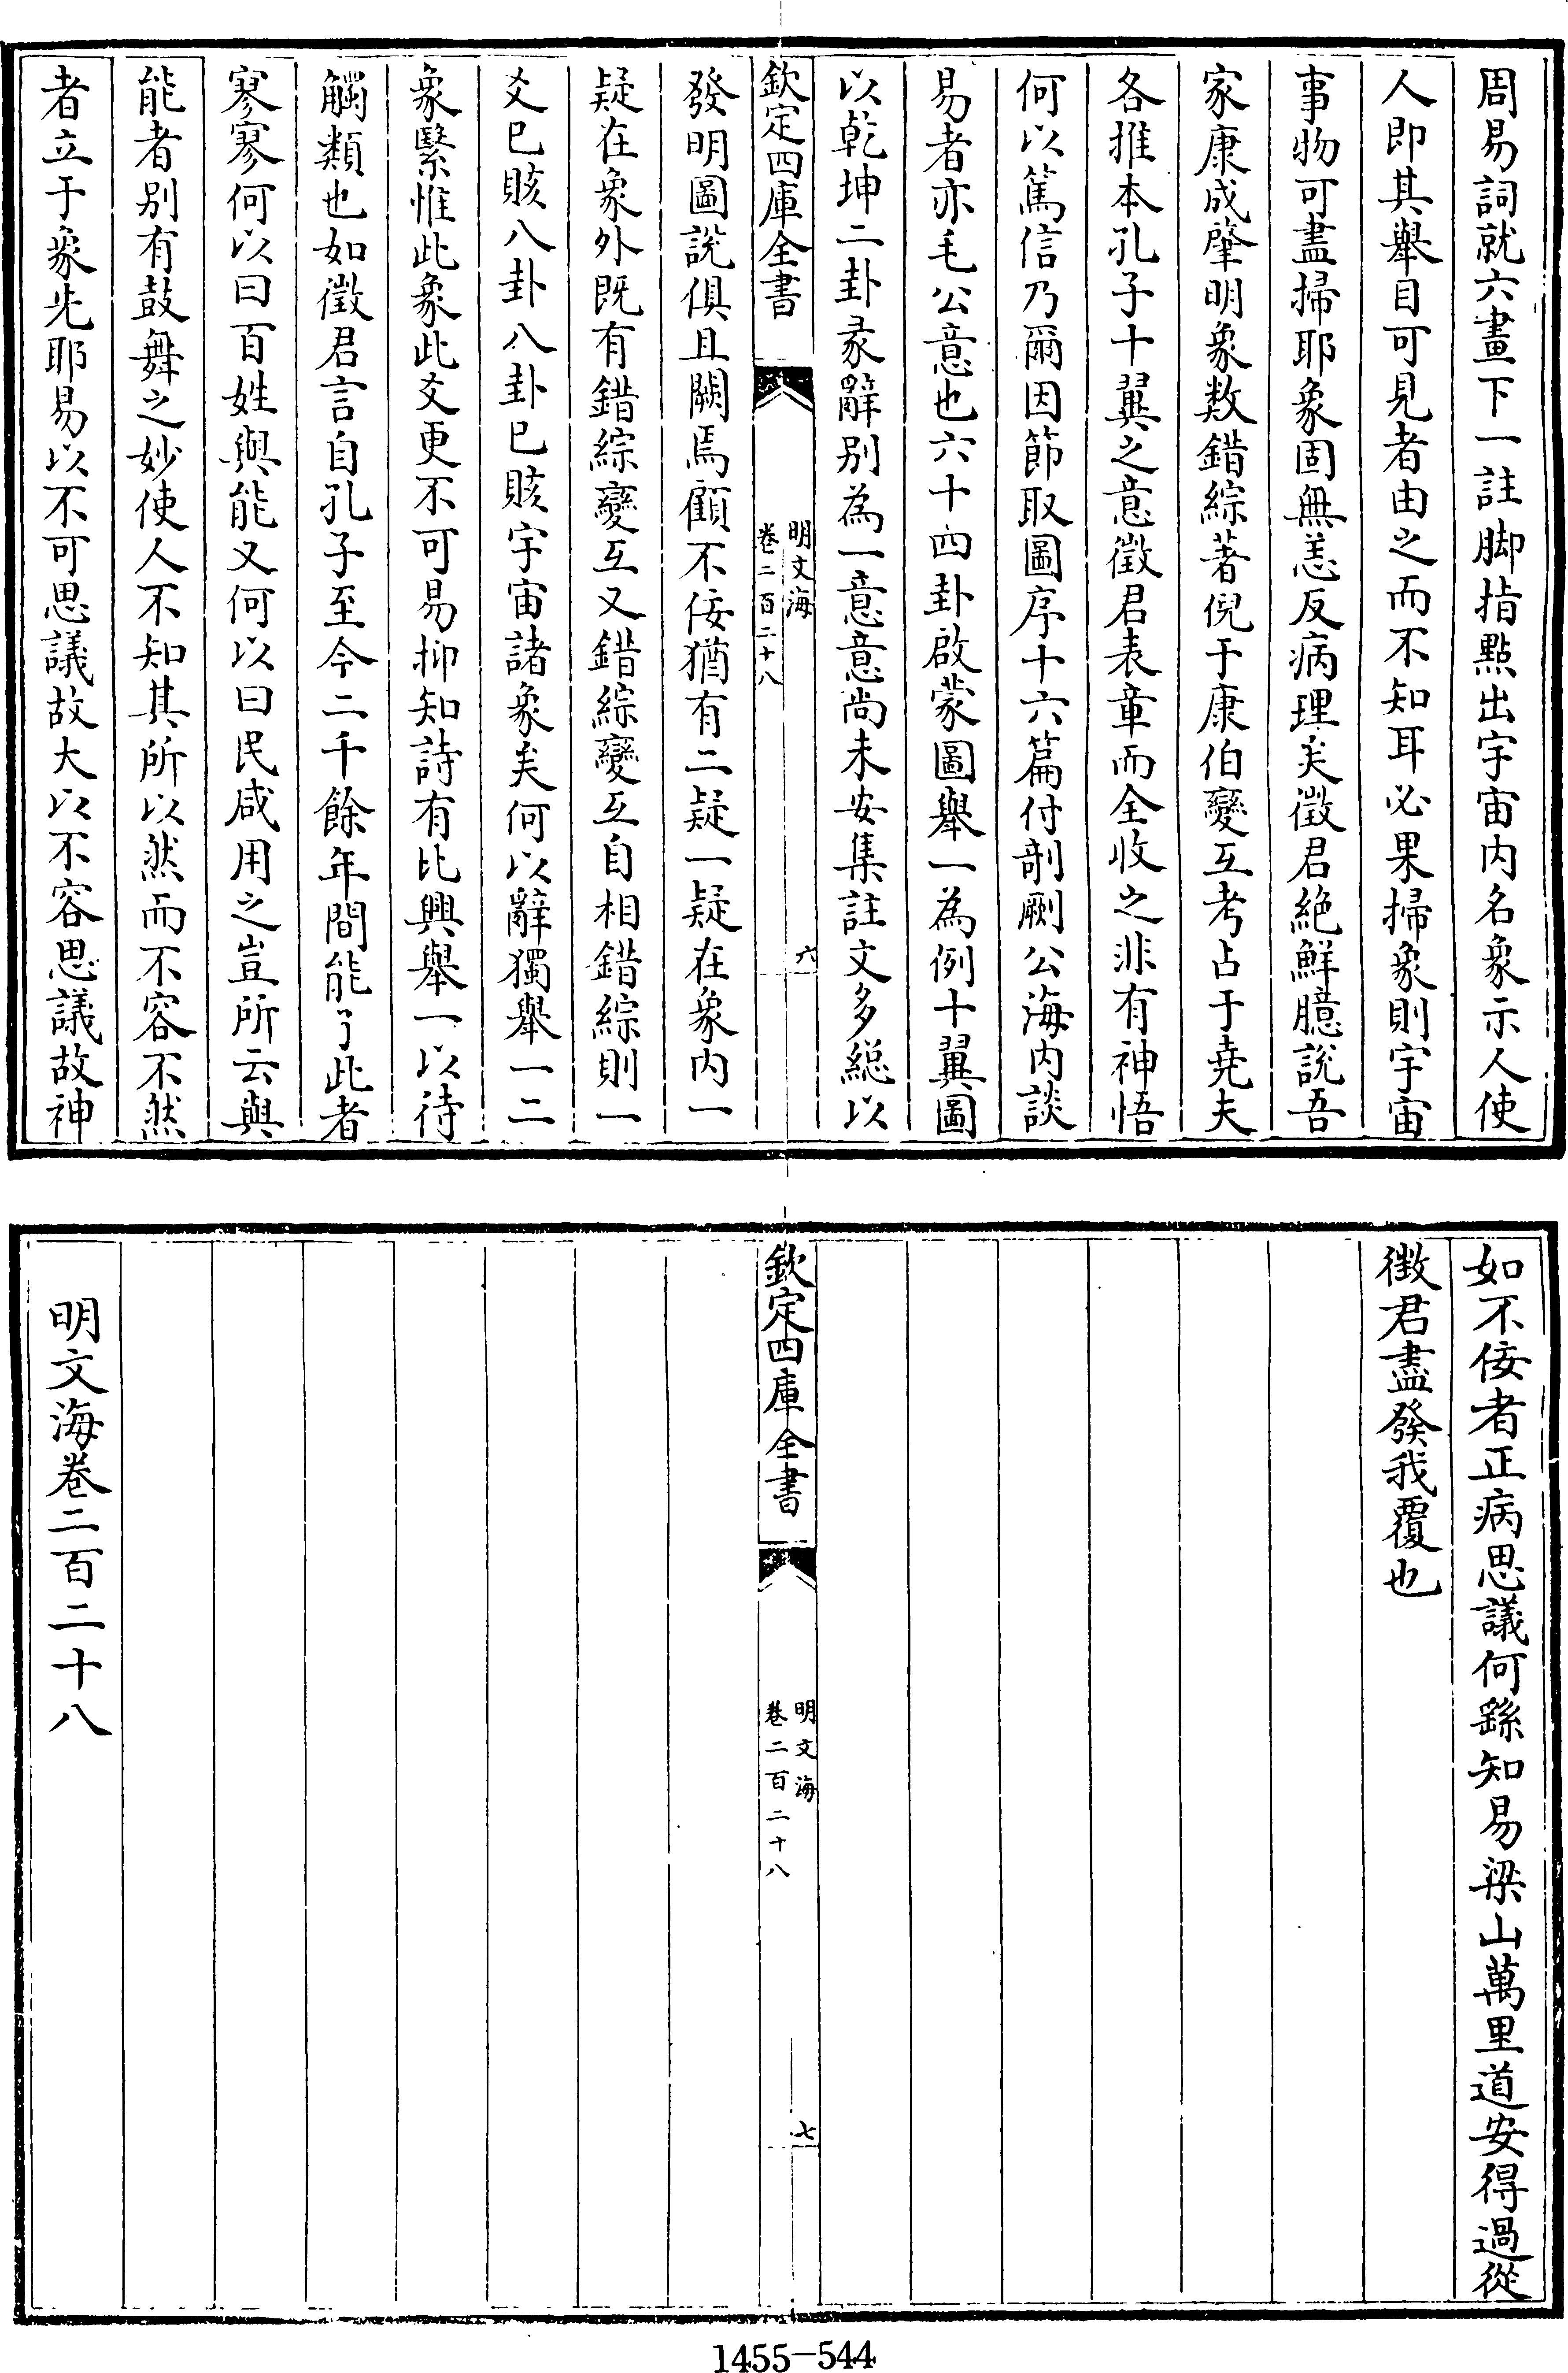 周易詞就六畫下一註脚指點出宇宙内名象示人使
人即其舉目可見者由之而不知耳必果掃象則宇宙
事物可盡掃耶象固無恙反病理矣徵君絶鮮臆說吾
家康成肇明象数錯綜著倪于康伯變互考占于堯夫
各推本孔子十翼之意徵君表章而全收之非有神悟
何以篤信乃爾因節取圖序十六篇付剞劂公海内談
易者亦毛公意也六十四卦啟蒙圖舉一為例十翼圖
以乾坤二卦彖辭别為一意意尚未安集註文多総以
欽定四庫全書
明文海
卷二百二十八
六
發明圖說俱且闕焉顧不佞猶有二疑一疑在象内一
疑在象外既有錯綜變互又錯綜變互自相錯綜則一
爻已賅八卦八卦已賅宇宙諸象矣何以辭獨舉一二
象繄惟此象此爻更不可易抑知詩有比興舉一以待
觸類也如徵君言自孔子至今二千餘年間能了此者
寥寥何以曰百姓與能又何以曰民咸用之豈所云與
能者别有鼓舞之妙使人不知其所以然而不容不然
者立于象先耶易以不可思議故大以不容思議故神
如不佞者正病思議何繇知易梁山萬里道安得過從
徴君盡發我覆也
欽定四庫全書
明文海
卷二百二十八
七
明文海卷二百二十八
1455-544